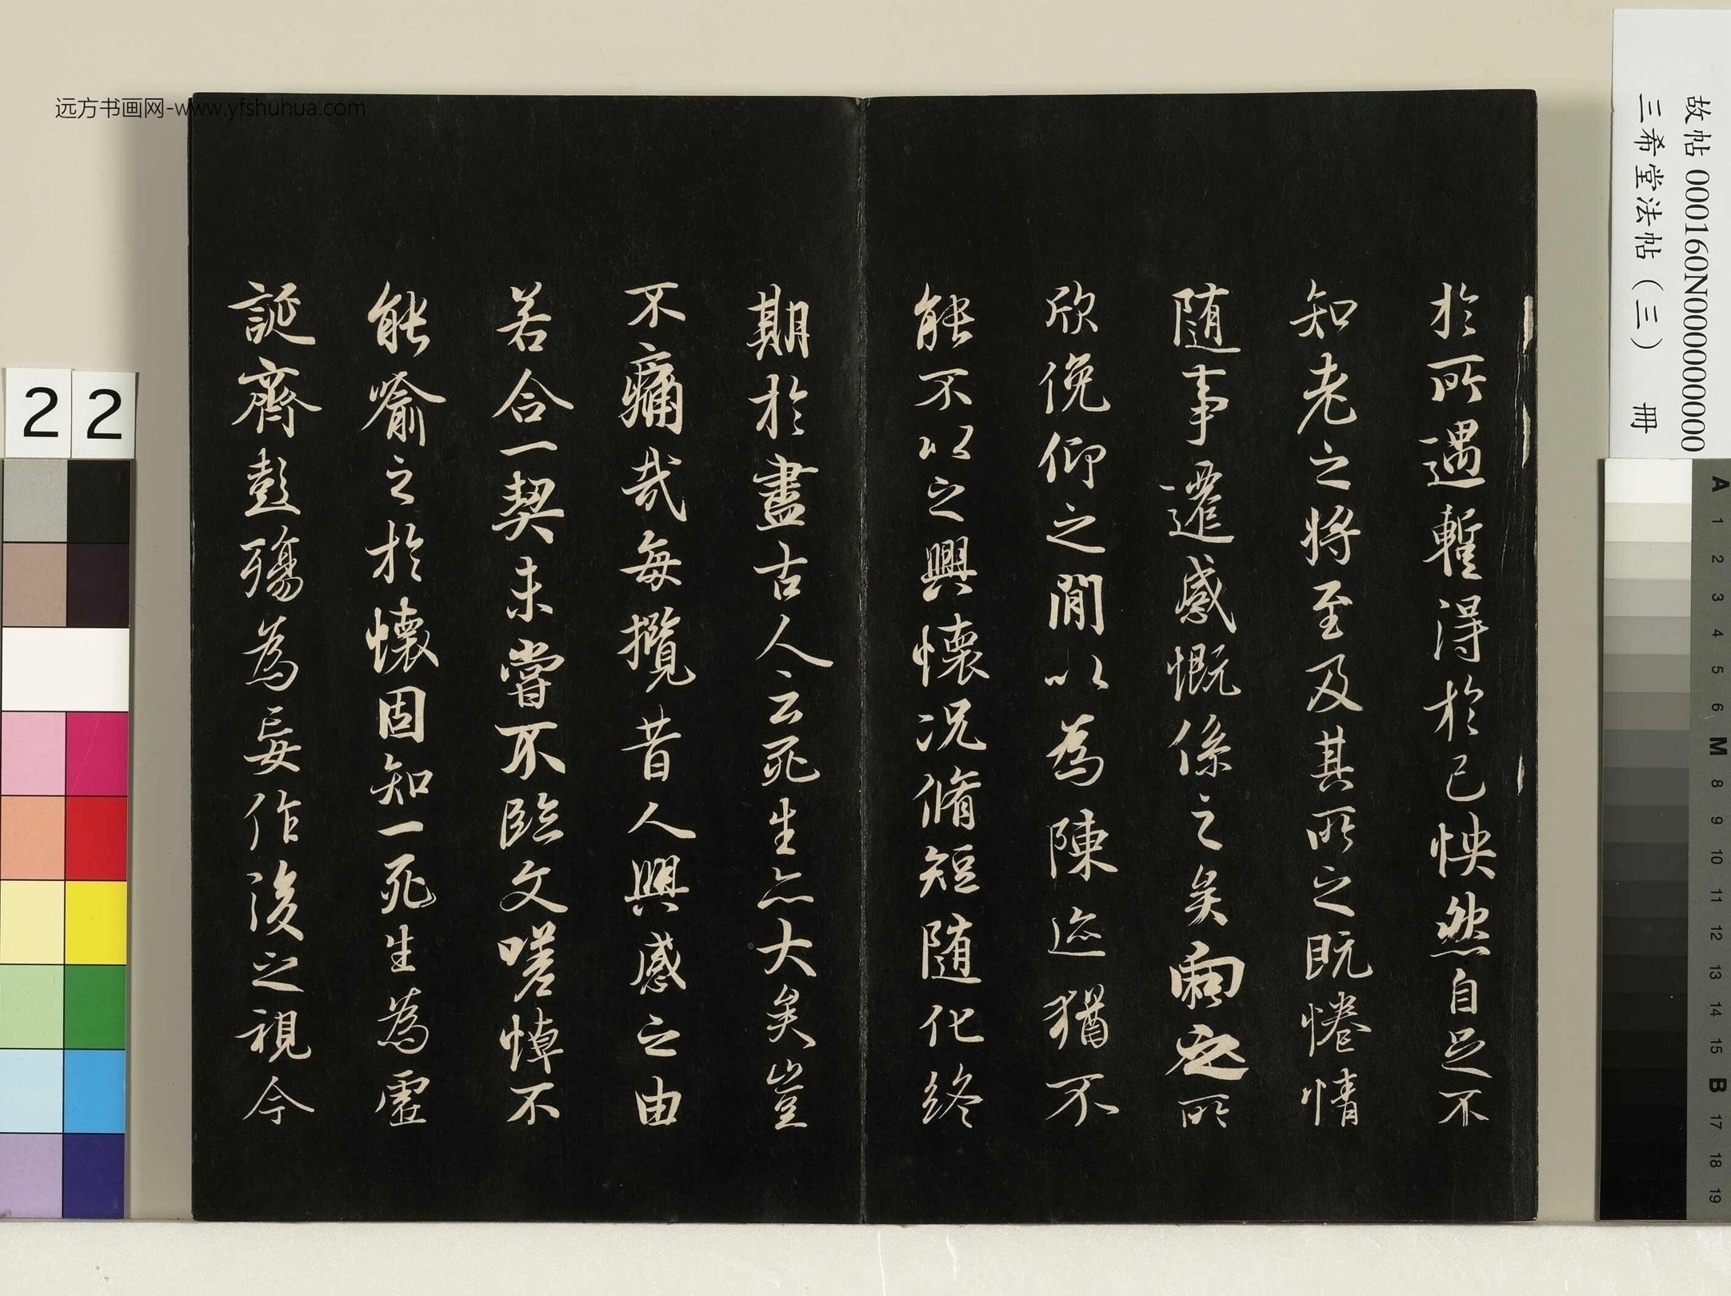 於所遇暫得於己怏然自足不
知老之將至及其所之既惓情
隨事遷感慨係之矣向之所
欣俛仰之閒以為陳迹猶不
能不以之興懷况脩短隨化終
期於盡古人云死生亦大矣豈
不痛哉每攬昔人興感之由
若合一契未嘗不臨文嗟悼不
能喻之於懷固知一死生為虛
誕齊彭殤為妄作後之視今
故帖 000160N000000000
三希堂法帖（三） 冊
远方书画网-www.yfshuhua.com
22
A
1
2
3
4
5
6
M
8
9
10
11
12
13
14
15
B
17
18
19